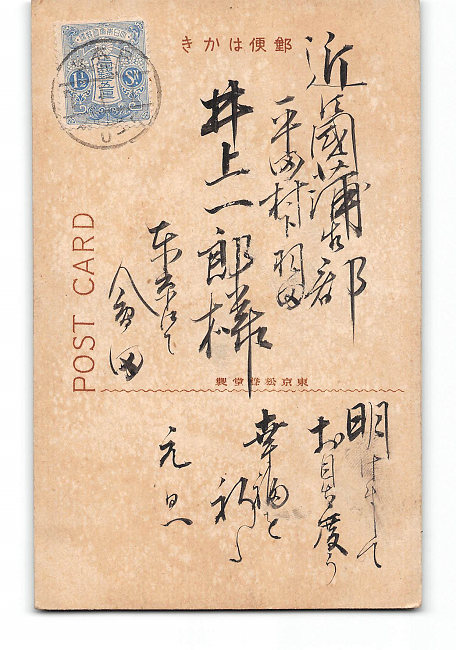 きかは便郵
近江国蒲生郡
平田村下羽田
井上一郎様
東京にて
POST CARD
1½ Sn
東京松聲堂製
明けまして
お目出度う
幸福を
祈る
元旦